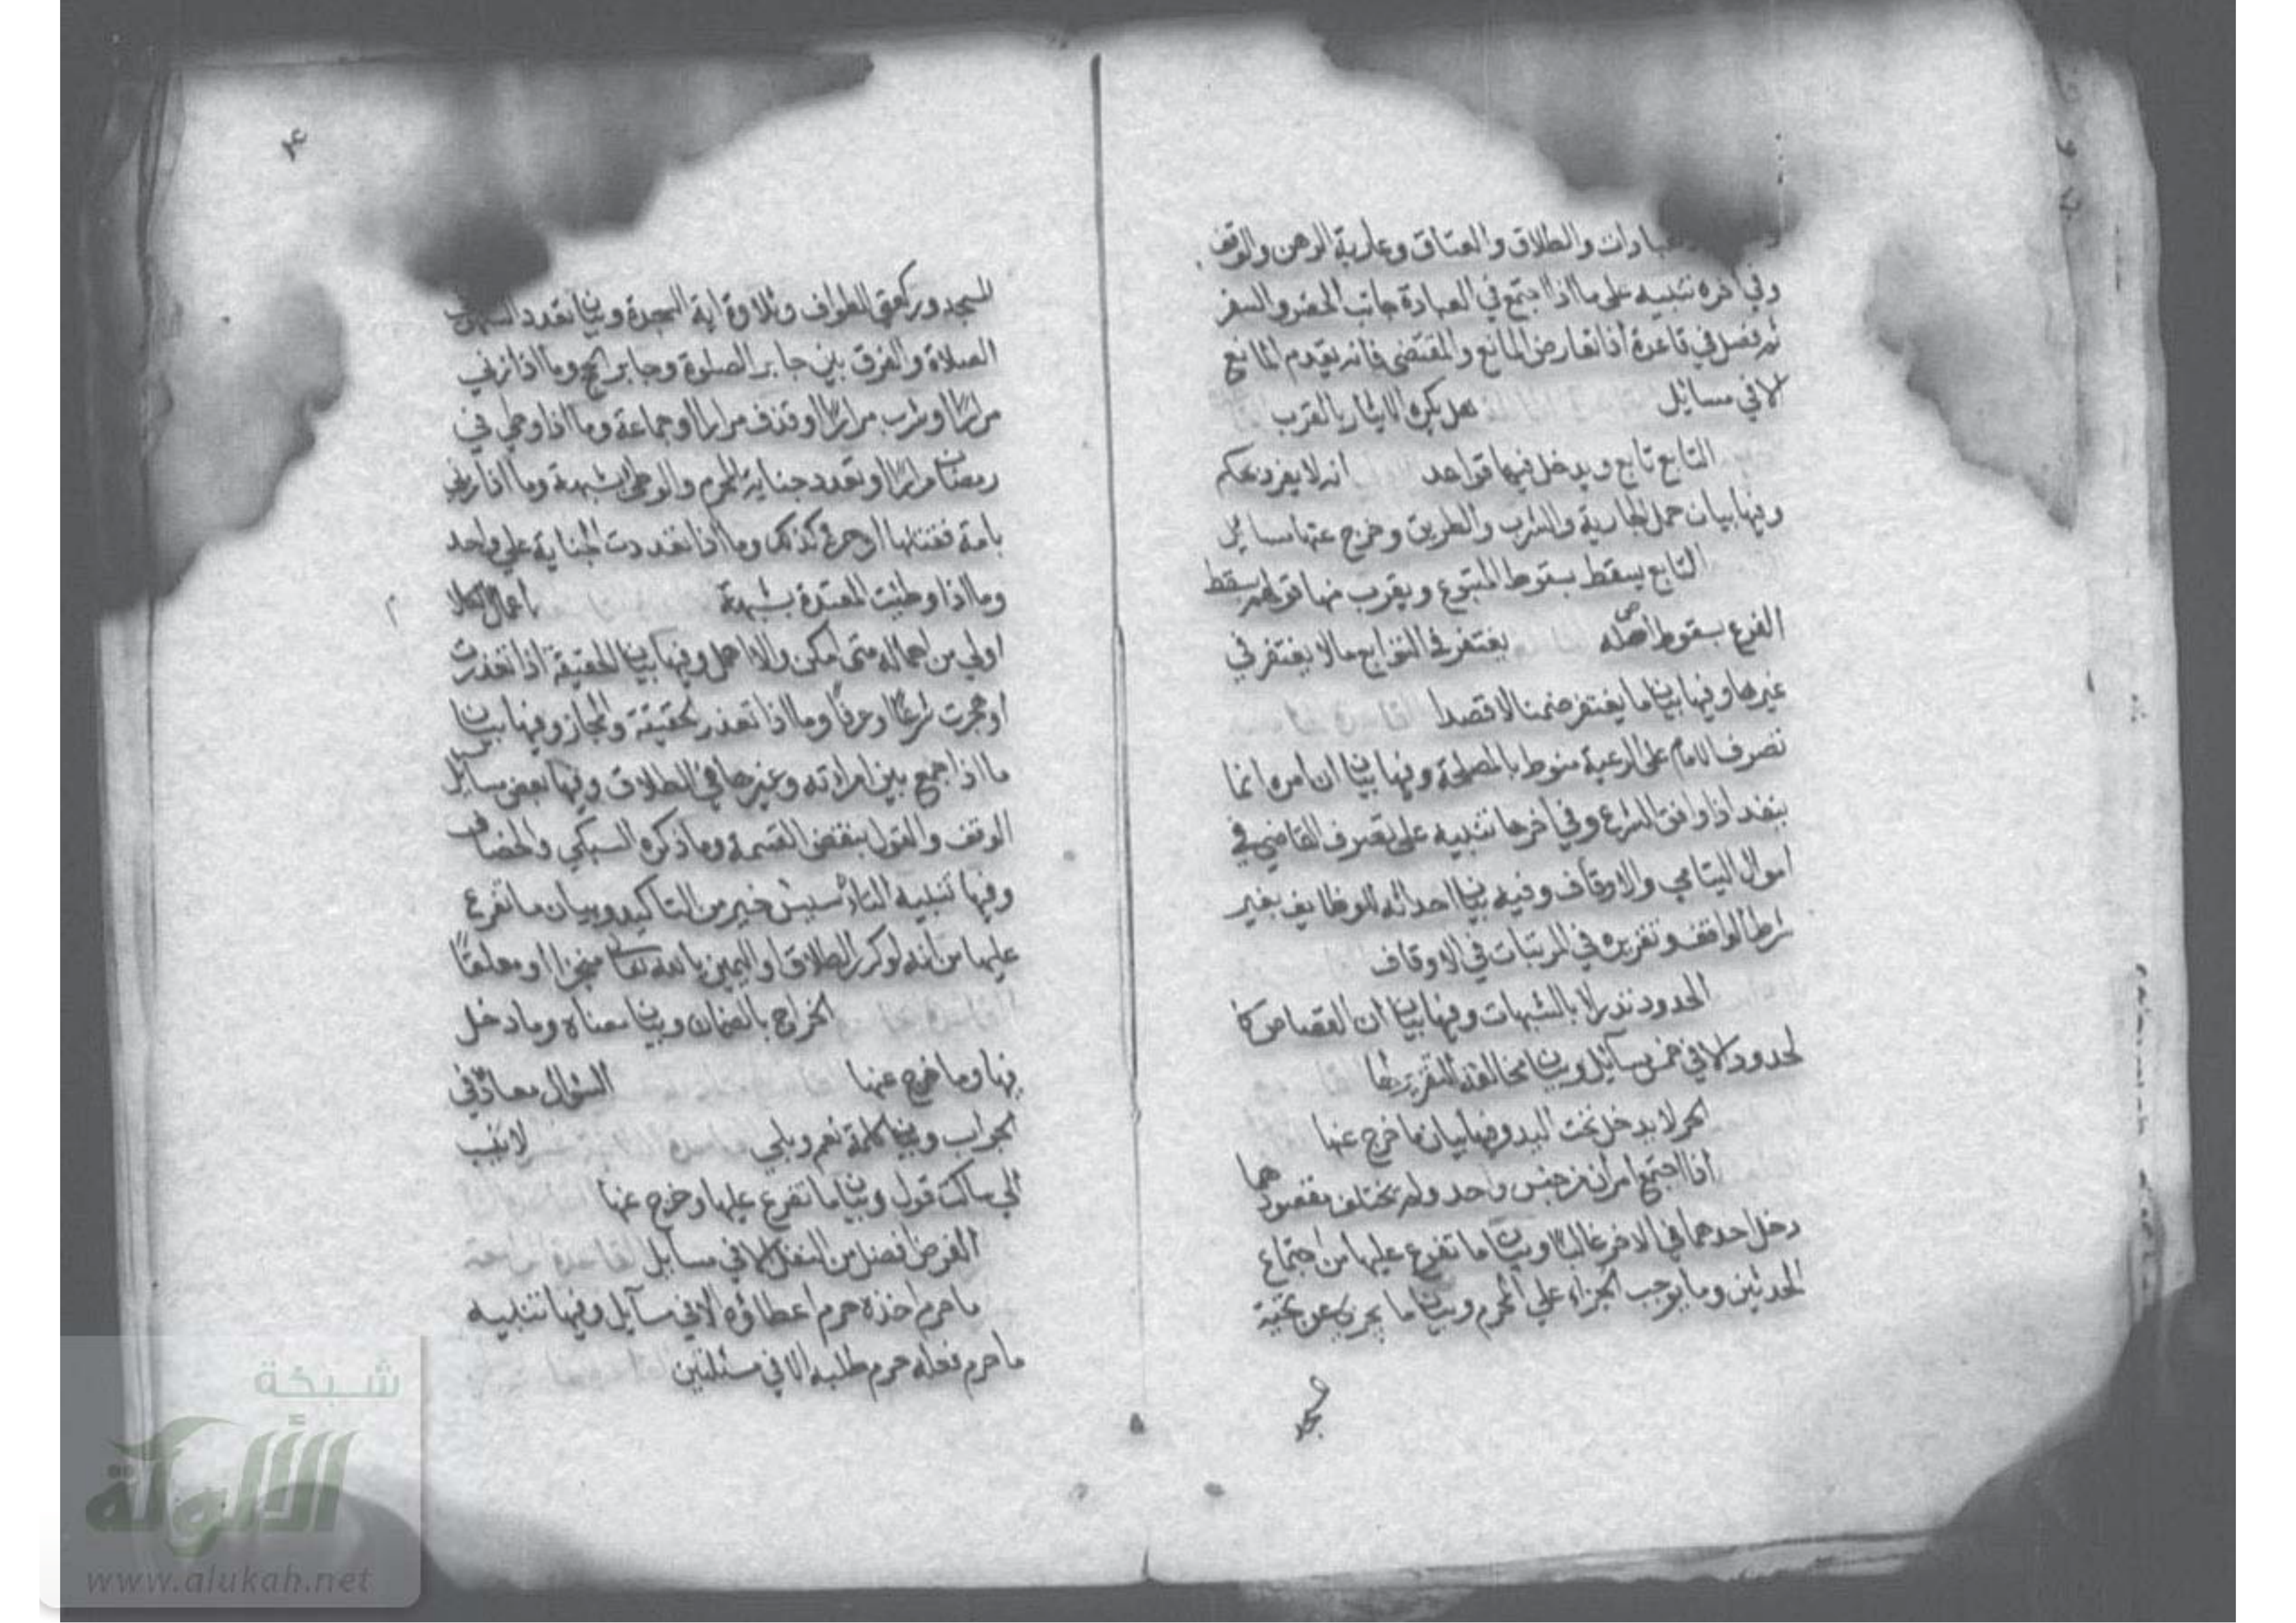 عبادات والطلاق والعتاق وعارية الرهن والوقف
وفي اخره تنبيه على ما اذا اجتمع في العبادة جانب الحضر والسفر
ثم فصل في قاعدة اذا تعارض المانع والمقتضى فانه يقدم المانع
الا في مسايل هل يكره الايثار بالقرب
التابع تابع ويدخل فيها قواعد انه لا يفرد بحكم
وفيها بيان حمل الجارية والشرب والطريق وخرج عنها مسايل
التابع يسقط بسقوط المتبوع ويقرب منها قولهم يسقط
الفرع بسقوط اصله يغتفر في التوابع ما لا يغتفر في
غيرها وفيها بيان ما يغتفر ضمنا لا قصدا
تصرف الامام على الرعية منوط بالمصلحة وفيها بيان ان امره انما
ينفذ اذا وافق الشرع وفي اخرها تنبيه على تصرف القاضي في
اموال اليتامي والاوقاف وفيه بيان احداثه الوظايف بغير
شرط الواقف وتقريره في المرتبات في الاوقاف
الحدود تدرا بالشبهات وفيها بيان ان القصاص كا
لحدود الا في خمس مسآئل وبيان مخالفة التعزير لها
الحر لا يدخل تحت اليد وفيها بيان ما خرج عنها
اذا اجتمع امران من جنس واحد ولم يختلف مقصودهما
دخل احدهما في الاخر غالبًا وبيان ما تفرع عليها من اجتماع
الحدثين وما يوجب الجزاء علي المحرم وبيان ما يجزئ عن تحية
المسجد وركعتي الطواف وتلاوة اية السجدة وبيان تعدد السهو في
الصلاة والفرق بين جابر الصلوة وجابر الحج وما اذا زني
مرارًا او شرب مرارًا او قذف مرارا او جماعة وما اذا وطي في
رمضان مرارًا وتعدد جناية المحرم والوطئ بشبهة وما اذا زنى
بامة فقتلها او حرة كذلك وما اذا تعددت الجناية على واحد
وما اذا وطئت المعتدة بشبهة اعمال الكلا
اولي من اهماله متى امكن والا اهمل وفيها بيان الحقيقة اذا تعذرت
او هجرت شرعًا او عرفًا وما اذا تعذر الحقيقة والمجاز وفيها بيان
ما اذا جمع بين امراته وغيرها في الطلاق وفيها بعض مسايل
الوقف والقول بنقض القسمة وما ذكره السبكي والخصاف
وفيها تنبيه التاسيس خير من التاكيد وبيان ما تفرع
عليها من انه لو كرر الطلاق او اليمين بالله تعالى منجزا او معلقًا
الخراج بالضمان وبيان معناه وما دخل
فيها وما خرج عنها السؤال معاد في
الجواب وبيان كلمة نعم وبلي لا ينسب
الي ساكت قول وبيان ما تفرع عليها وخرج عنها
الفرض افضل من النفل الا في مسايل
ما حرم اخذه حرم اعطاؤه الا في مسآيل وفيها تنبيه
ما حرم فعله حرم طلبه الا في مسئلتين
شبكة
الألوكة
www.alukah.net